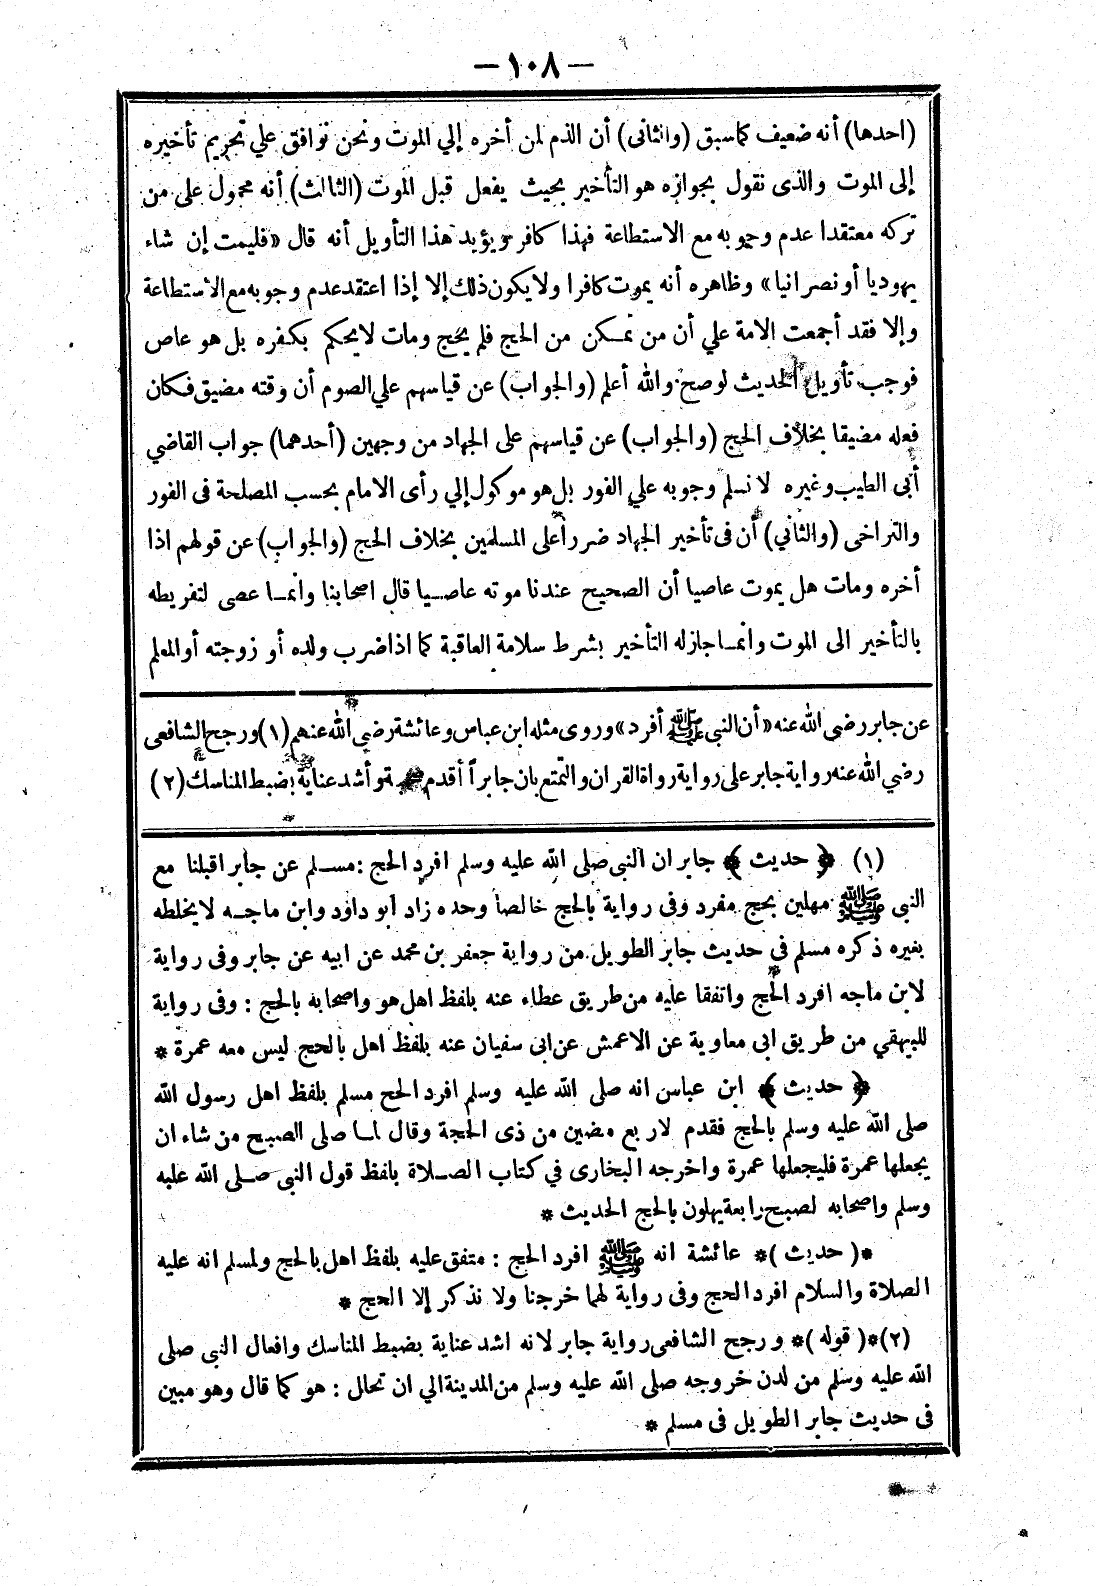 — ١٠٨ —
(احدها) أنه ضعيف كما سبق (والثانى) أن الذم لمن أخره إلي الموت ونحن نوافق علي تحريم تأخيره
إلى الموت والذى نقول بجوازه هو التأخير بحيث يفعل قبل الموت (الثالث) أنه محمول على من
تركه معتقدا عدم وجوبه مع الاستطاعة فهذا كافر ويؤيد هذا التأويل أنه قال «فليمت إن شاء
يهوديا أو نصرانيا» وظاهره أنه يموت كافرا ولا يكون ذلك إلا إذا اعتقد عدم وجوبه مع الاستطاعة
وإلا فقد أجمعت الامة علي أن من تمكن من الحج فلم يحج ومات لا يحكم بكفره بل هو عاص
فوجب تأويل الحديث لو صح والله أعلم (والجواب) عن قياسهم علي الصوم أن وقته مضيق فكان
فعله مضيقا بخلاف الحج (والجواب) عن قياسهم على الجهاد من وجهين (أحدهما) جواب القاضي
أبى الطيب وغيره لا نسلم وجوبه علي الفور بل هو موكول إلي رأى الامام بحسب المصلحة فى الفور
والتراخى (والثاني) أن فى تأخير الجهاد ضررا على المسلمين بخلاف الحج (والجواب) عن قولهم اذا
أخره ومات هل يموت عاصيا أن الصحيح عندنا موته عاصيا قال اصحابنا وانما عصى لتفريطه
بالتأخير الى الموت وانما جاز له التأخير بشرط سلامة العاقبة كما اذا ضرب ولده أو زوجته أو المعلم
عن جابر رضي الله عنه «أن النبي ﷺ أفرد» وروى مثله ابن عباس وعائشة رضي الله عنهم (١) ورجح الشافعى
رضي الله عنه رواية جابر على رواية رواة القران والتمتع بان جابراً أقدم وأشد عناية بضبط المناسك (٢)
(١) ﴿ حديث ﴾ جابر ان النبى صلى الله عليه وسلم افرد الحج : مسلم عن جابر اقبلنا مع
النبى ﷺ مهلين بحج مفرد وفى رواية بالحج خالصا وحده زاد ابو داود وابن ماجه لا يخلطه
بغيره ذكره مسلم في حديث جابر الطويل من رواية جعفر بن محمد عن ابيه عن جابر وفى رواية
لابن ماجه افرد الحج واتفقا عليه من طريق عطاء عنه بلفظ اهل هو واصحابه بالحج : وفى رواية
للبيهقي من طريق ابى معاوية عن الاعمش عن ابى سفيان عنه بلفظ اهل بالحج ليس معه عمرة *
﴿ حديث ﴾ ابن عباس انه صلى الله عليه وسلم افرد الحج مسلم بلفظ اهل رسول الله
صلى الله عليه وسلم بالحج فقدم لاربع مضين من ذى الحجة وقال لما صلى الصبح من شاء ان
يجعلها عمرة فليجعلها عمرة واخرجه البخارى في كتاب الصلاة بلفظ قول النبى صلى الله عليه
وسلم واصحابه لصبح رابعة يهلون بالحج الحديث *
*( حديث )* عائشة انه ﷺ افرد الحج : متفق عليه بلفظ اهل بالحج ولمسلم انه عليه
الصلاة والسلام افرد الحج وفى رواية لهما خرجنا ولا نذكر إلا الحج *
(٢)*( قوله )* ورجح الشافعى رواية جابر لانه اشد عناية بضبط المناسك وافعال النبى صلى
الله عليه وسلم من لدن خروجه صلى الله عليه وسلم من المدينة الي ان تحلل : هو كما قال وهو مبين
فى حديث جابر الطويل فى مسلم *